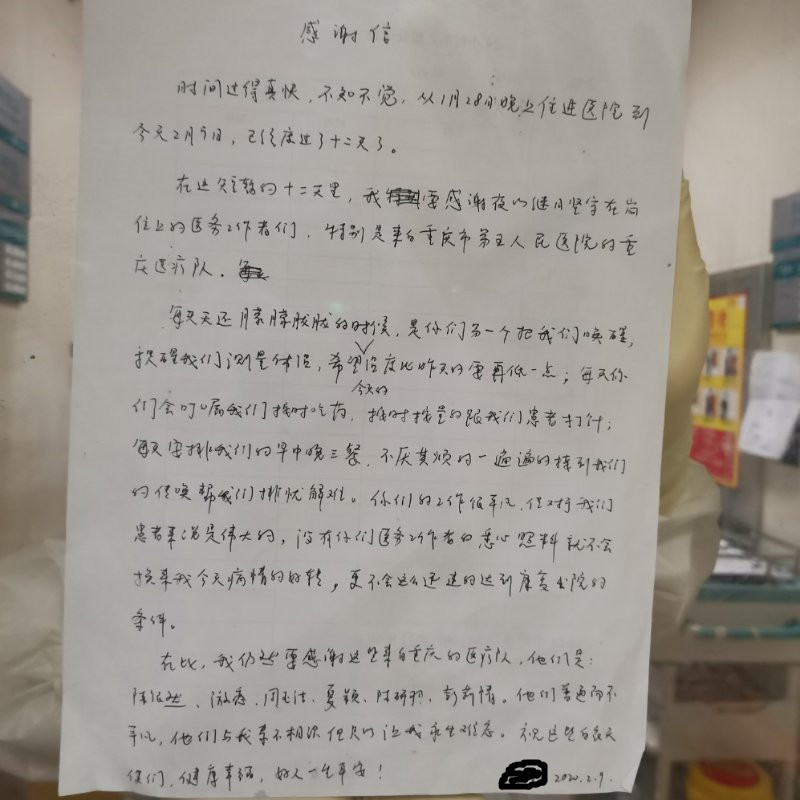 感谢信
时间过得真快，不知不觉，从1月28日晚上住进医院到
今天2月9日，已经度过了十二天了。
在这短暂的十二天里，我要感谢夜以继日坚守在岗
位上的医务工作者们，特别是来自重庆市第五人民医院的重
庆医疗队。
每天天还朦朦胧胧的时候，是你们第一个把我们唤醒，
提醒我们测量体温，希望今天的温度比昨天的要再低一点；每天你
们会叮嘱我们按时吃药，按时按量的跟我们患者打针；
每天安排我们的早中晚三餐，不厌其烦的一遍遍的接到我们
的传唤帮我们排忧解难。你们的工作很平凡，但对于我们
患者来说是伟大的，没有你们医务工作者的悉心照料就不会
换来我今天病情的好转，更不会这么迅速的达到康复出院的
条件。
在此，我仍然要感谢这些来自重庆的医疗队，他们是：
夏颖、彭莉情。他们普通而不
平凡，他们与我素不相识但足以让我永生难忘。祝这些白衣天
使们，健康幸福，好人一生平安！
2020.2.9.